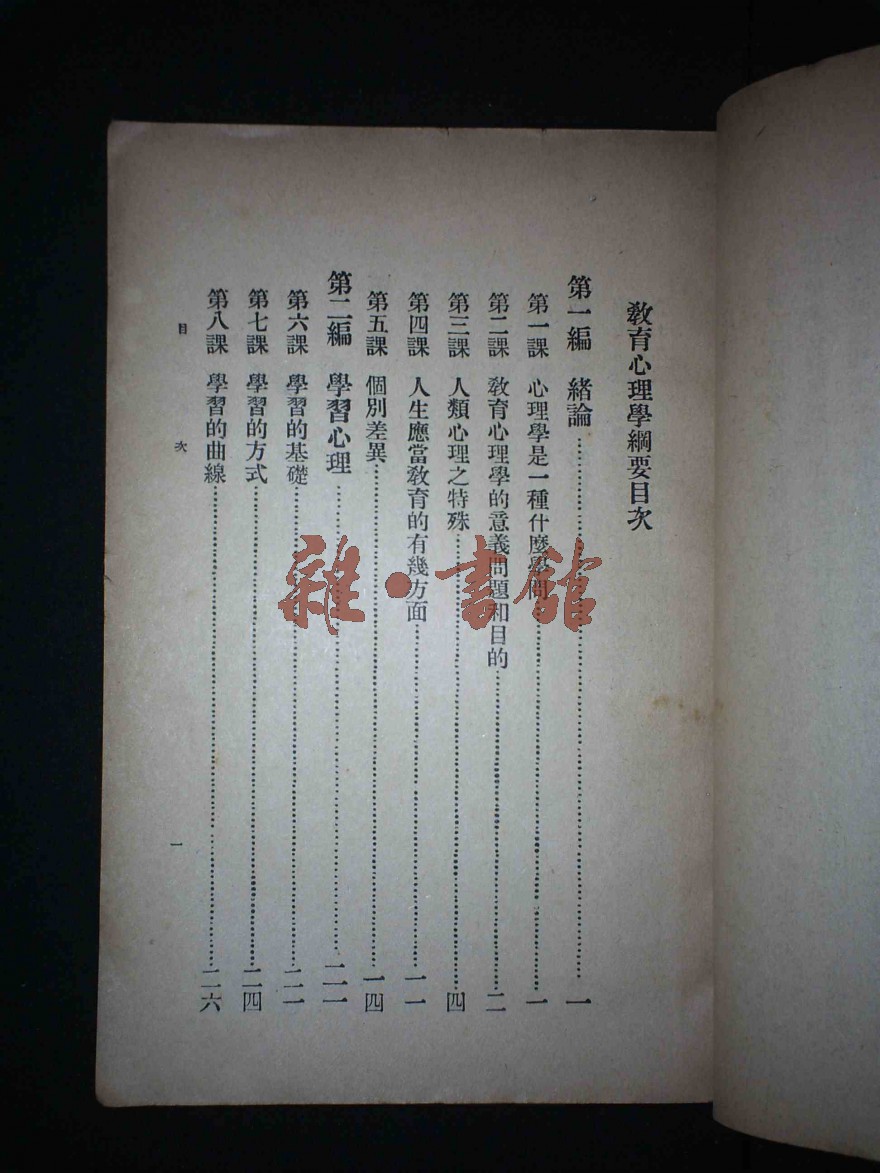 教育心理學綱要目次
第一編 緒論……一
第一課 心理學是一種什麼學問……一
第二課 教育心理學的意義問題和目的……二
第三課 人類心理之特殊……四
第四課 人生應當教育的有幾方面……一一
第五課 個別差異……一四
第二編 學習心理……二一
第六課 學習的基礎……二一
第七課 學習的方式……二四
第八課 學習的曲線……二六
目 次 一
雜·書館